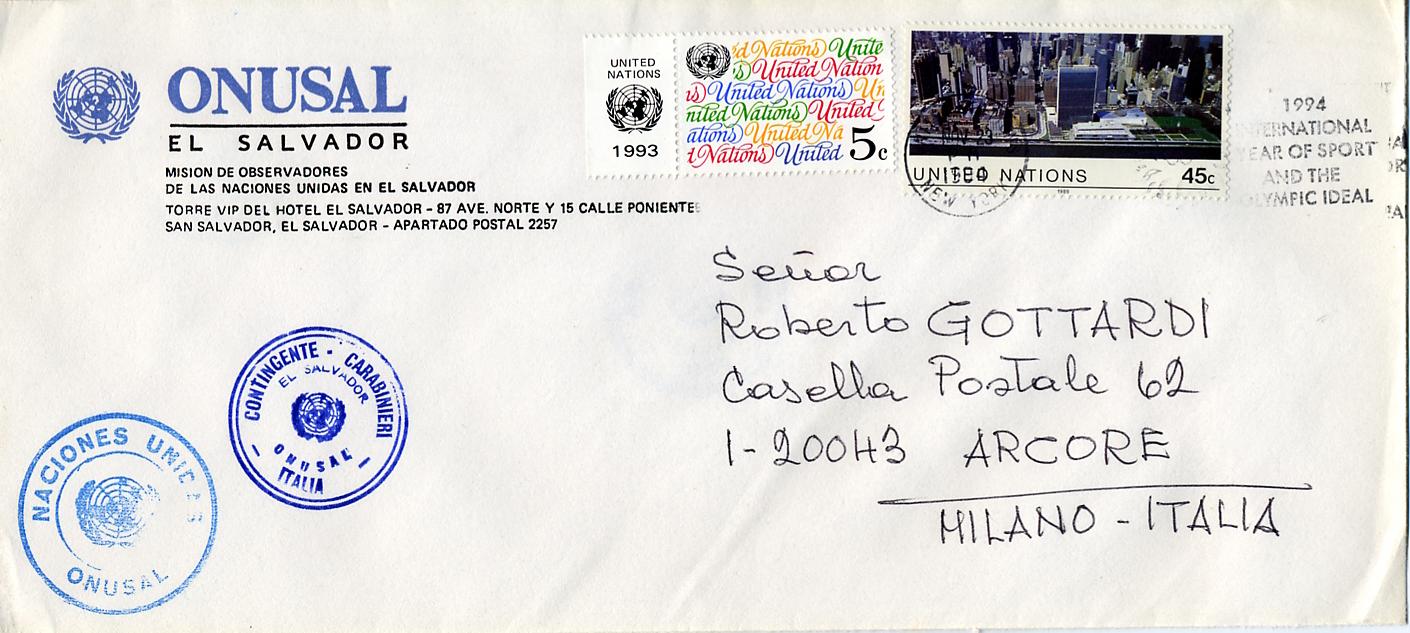 ONUSAL
EL SALVADOR
MISION DE OBSERVADORES
DE LAS NACIONES UNIDAS EN EL SALVADOR
TORRE VIP DEL HOTEL EL SALVADOR - 87 AVE. NORTE Y 15 CALLE PONIENTE
SAN SALVADOR, EL SALVADOR - APARTADO POSTAL 2257
UNITED
NATIONS
1993
ed Nations) Unite
s) United Nation
ns) United Nations) Un
nited Nations) United
ations) United Na
t Nations) United
5c
UNITED NATIONS
45c
1989
NEW YORK
1994
INTERNATIONAL
YEAR OF SPORT
AND THE
OLYMPIC IDEAL
Señor
Roberto GOTTARDI
Casella Postale 62
I-20043 ARCORE
MILANO - ITALIA
CONTINGENTE - CARABINIERI
EL SALVADOR
ONUSAL
ITALIA
NACIONES UNIDAS
ONUSAL